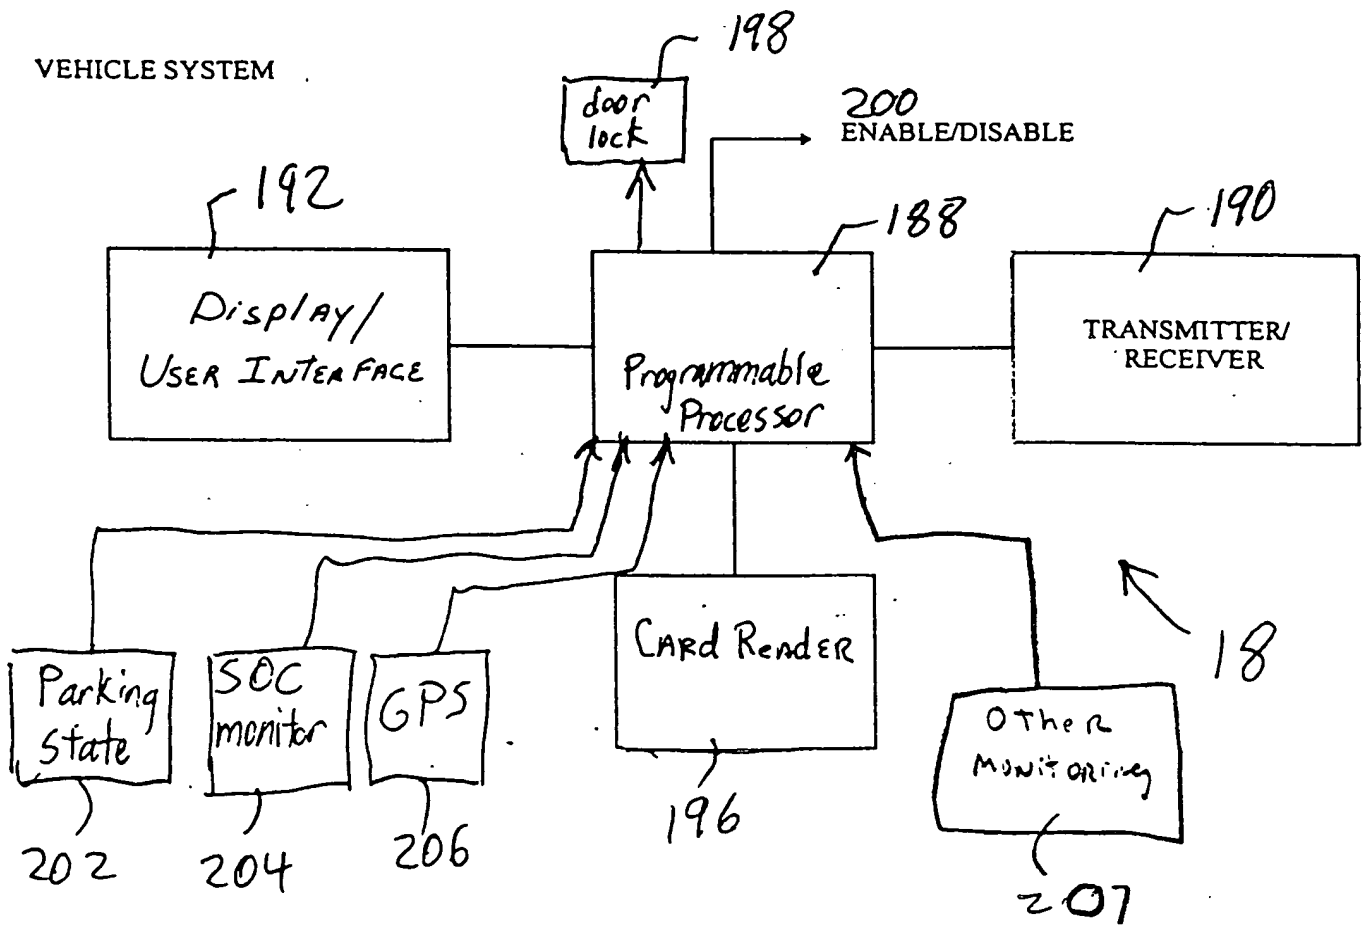 198
VEHICLE SYSTEM
door
lock
200
ENABLE/DISABLE
192
188
190
Display/
USER INTERFACE
Programmable
Processor
TRANSMITTER/
RECEIVER
Parking
state
SOC
monitor
GPS
CARD READER
18
OTHER
MONITORING
202
204
206
196
207